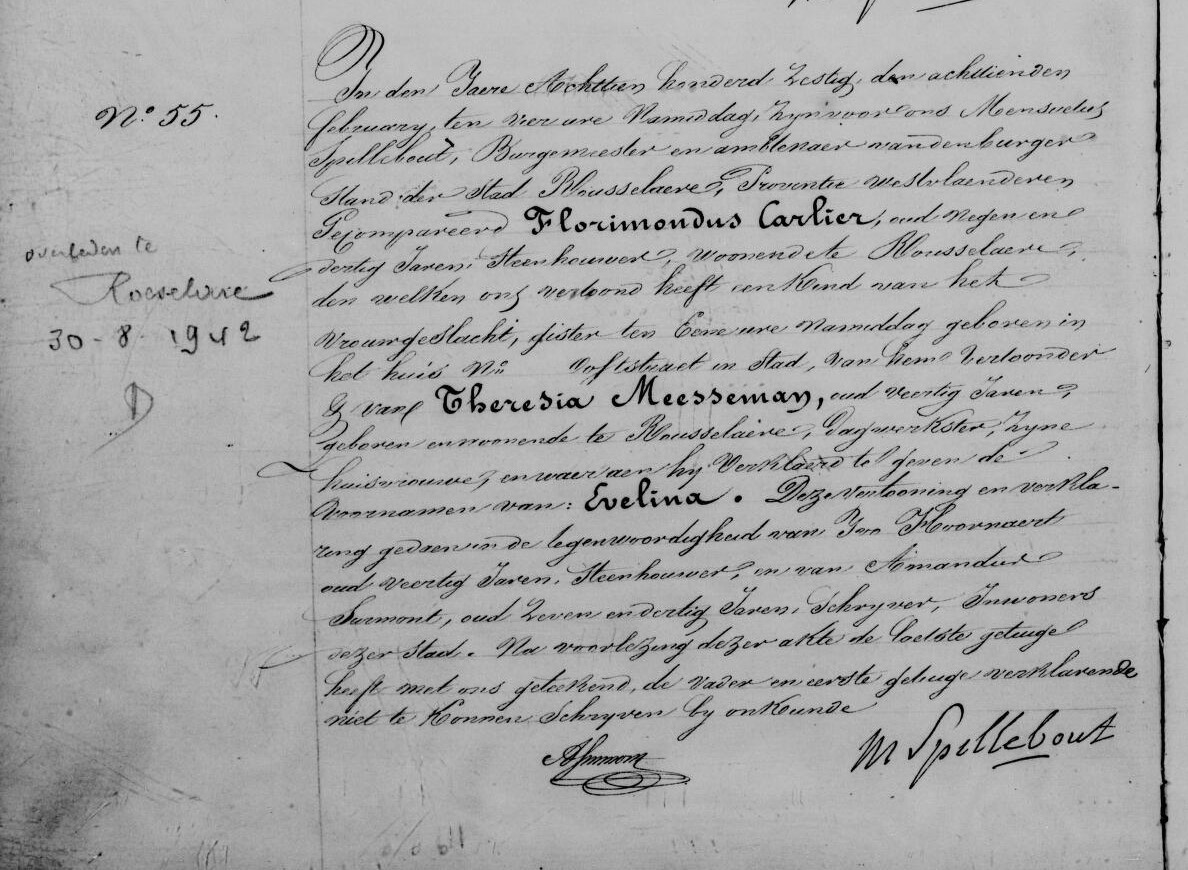 N.º 55.
In den Jaere Achttien honderd Zestig, den achttienden
february, ten vier ure Namiddag, Zyn voor ons Mensuetus
Spillebout, Burgemeester en ambtenaer van den burger
stand der stad Rousselaere, Proventie Westvlaenderen
Gecompareerd Florimondus Carlier, oud negen en
dertig Jaren, Steenhouwer, woonende te Rousselaere,
den welken ons vertoond heeft een Kind van het
vrouwgeslacht, gister ten Eene ure namiddag geboren in
het huis Nº Ooststraet in Stad, van hem Vertoonder
En van Theresia Meesseman, oud veertig Jaren,
geboren en woonende te Rousselaere, dagwerkster, Zyne
huisvrouwe, en waer aen hy Verklaerd te geven de
Voornamen van: Evelina. Deze vertooning en verkla-
ring gedaen in de tegenwoordigheid van Ivo Hoornaert
oud veertig Jaren, Steenhouwer, en van Amandus
Surmont, oud Zeven en dertig Jaren, Schryver, Inwoners
dezer stad. Na voorlezing dezer akte de laetste getuige
heeft met ons geteekend, de vader en eerste getuige verklarende
niet te Konnen Schryven by onkunde
ASurmont
M Spillebout
overleden te
Roeselare
30-8-1942